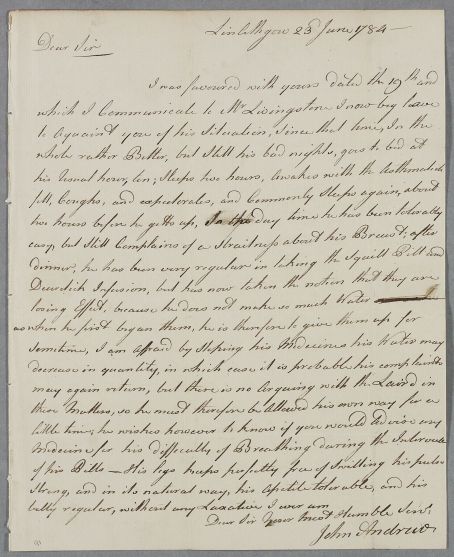 Linlithgow 23d June 1784 —
Dear Sir
I was favoured with yours dated the 19th and
which I Communicate to Mr Livingstone I now beg leave
to Aquaint you of his Situation, Since that time, In the
whole rather Better, but Still his bad nights, goes to bed at
his Usual hour, ten; Sleeps two hours, Awakes with the Asthmatick
fitt, Coughs, and expectorates, and Commonly Sleeps again, about
two hours before he getts up, In the day time he has been tolerably
easy, but Still Complains of a Straitness about his Breast; after
dinner, he has been very regular in taking the Squill Pill and
Diuretick Infusion, but has now taken the notion that they are
losing Effect, because he does not make so much Water
as when he first began them, he is therefore to give them up for
Sometime, I am Affraid by Stoping his Medicines his Water may
decrease in quantity, in which case it is probable his complaints
may again return, but there is no Arguing with the Laird in
these Matters, so he must therefore be Allowed his own way for a
little time; he wishes however to know if you would Advise any
Medecine for his difficulty of Breathing during the Intervale
of his Pills — His legs keeps perfectly free of Swilling his pulse
Strong, and in its natural way, his Apetite tolerable, and his
belly regular, without any Laxative I ever am
Dear Sir Your most Humble Servt
John Andrew